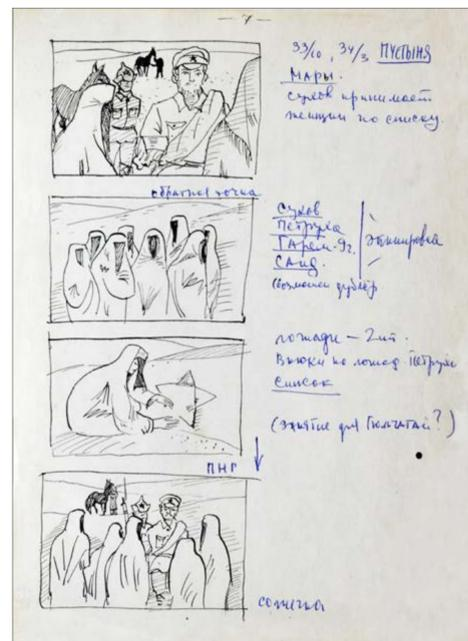 — 7 —
33/10, 34/3 ПУСТЫНЯ
МАРЫ.
Сухов принимает
женщин по списку.
обратная точка
Сухов
Петруха
Гарем - 9 ч.
Саид.
экипировка
возможен дублёр
лошади — 2 шт.
Вьюки на лошад. Петрухи
Список
(занятие для Гюльчатай?)
ПНГ